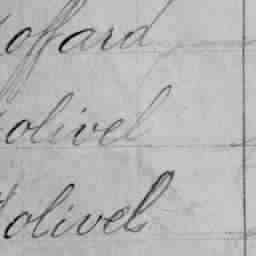 offard
olivel
olivel